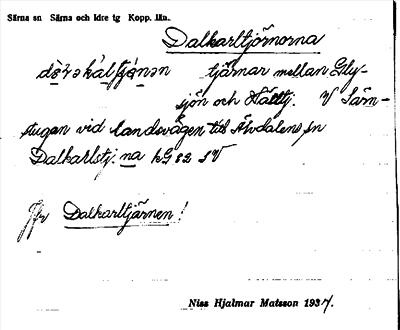 Särna sn Särna och Idre tg Kopp. län.
Dalkarltjörnorna
tjärnar mellan Gly-
sjön och Hålltj. V Särn-
stugan vid landsvägen till Älvdalens sn
Dalkarlstj. na kG 82 SV
Jfr Dalkarltjärnen!
Niss Hjalmar Matsson 1937.